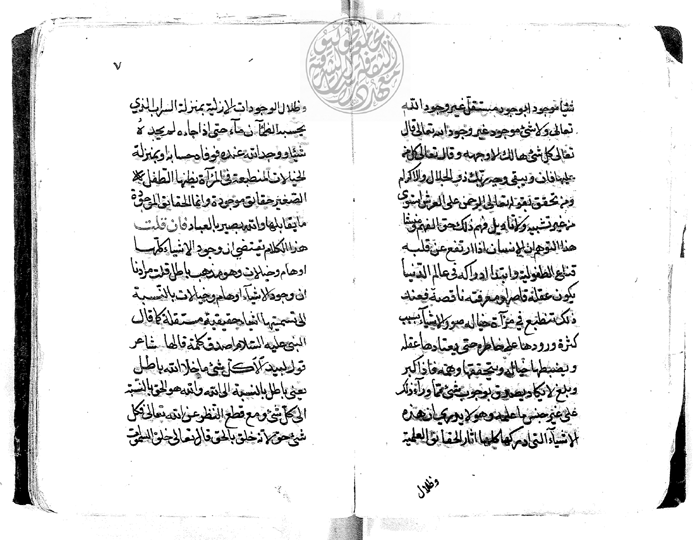 شيأ موجود ابوجود مستقل غير وجود الله
تعالى ولا شئ موجود غير وجود الله تعالى قال
تعالى كل شئ هالك الا وجهه وقال تعالى كل من
عليها فان ويبقى وجه ربك ذو الجلال والاكرام
ومن تحقق بقوله تعالى الرحمن على العرش استوى
من غير تشبيه ولا فهم ذلك حق الفهم ومنشأ
هذا التوهم ان الانسان اذا ارتفع عن قلبه
قناع الطفولية وابتدا ادراكه فى عالم الدنيا
يكون عقله قاصرا ومعرفته ناقصة فعند
ذلك تنطبع فى مرآة خياله صور الاشيآء بسبب
كثرة ورودها على خاطره حتى يعتادها عقله
ويضبطها خياله ويتحققها وهمه فاذا كبر
وبلغ لا يكاد يصدق بوجود شئ ما ورآء ذلك
على غير جنس ما علمه وهو لا يدرى ان هذه
الاشيآء التى ادركها كلها اثار الحقايق العلمية
وظلال
٧
وظلال الوجودات الازلية بمنزلة السراب الذى
يحسبه الظمآن مآء حتى اذا جاءه لم يجده
شيئا ووجد الله عنده فوفاه حسابه وبمنزلة
الخيالات المنطبعة فى المرآة يظنها الطفل
الصغير حقايق موجودة وانما الحقايق الموجودة
ما يقابلها والله بصير بالعباد فان قلت
هذا الكلام يقتضى ان وجود الاشياء كلها
اوهام وخيالات وهو مذهب باطل قلت مرادنا
ان وجود الاشياء اوهام وخيالات بالنسبة
الى تسميتها اشياء حقيقية مستقلة كما قال
النبى عليه السلام اصدق كلمة قالها شاعر
قول لبيد الا كل شئ ما خلا الله باطل
يعنى باطل بالنسبة الى الله والله هو الحق بالنسبة
الى كل شئ ومع قطع النظر عن الله تعالى فكل
شئ حق لانه خلق بالحق قال تعالى خلق السموات